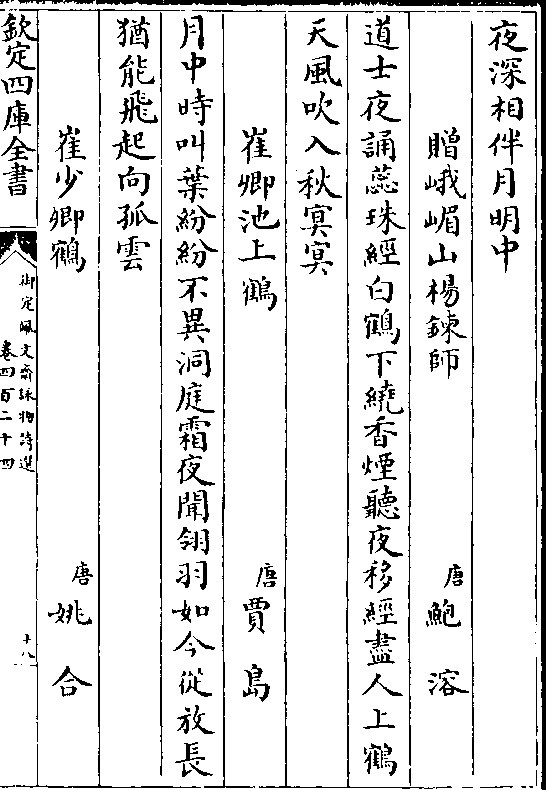 夜深相伴月明中
贈峨嵋山楊鍊師 唐 鮑溶
道士夜誦蕊珠經白鶴下繞香煙聽夜移經盡人上鶴
天風吹入秋冥冥
崔卿池上鶴 唐 賈島
月中時叫葉紛紛不異洞庭霜夜聞翎羽如今從放長
猶能飛起向孤雲
崔少卿鶴 唐 姚合
欽定四庫全書
御定佩文齋詠物詩選
卷四百二十四
十八